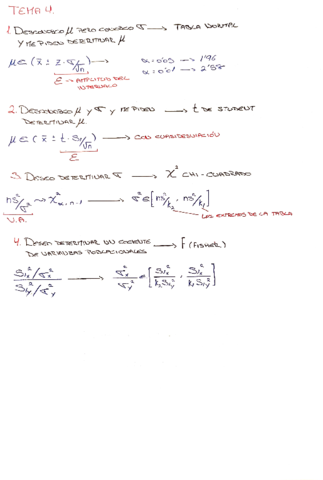 TEMA 4.
1. DESCONOZCO μ PERO CONOZCO σ → TABLA NORMAL
Y ME PIDEN DETERMINAR μ
μ ∈ (x̄ ± z · σ/√n) → α = 0'05 → 1'96
α = 0'01 → 2'58
ε → AMPLITUD DEL INTERVALO
2. DESCONOZCO μ Y σ Y ME PIDEN → t DE STUDENT
DETERMINAR μ.
μ ∈ (x̄ ± t · S₁/√n) → CON CUASIDESVIACIÓN
ε
3. DESEO DETERMINAR σ → χ² CHI-CUADRADO
ns²/σ² ~ χ² α, n-1 → σ² ∈ [ns²/k₂, ns²/k₁]
V.A.
LOS EXTREMOS DE LA TABLA
4. DESEO DETERMINAR UN COCIENTE → F (FISHER)
DE VARIANZAS POBLACIONALES
S₁ₓ²/σₓ² / S₁ᵧ²/σᵧ² → σₓ²/σᵧ² = [S₁ₓ²/k₂S₁ᵧ², S₁ₓ²/k₁S₁ᵧ²]